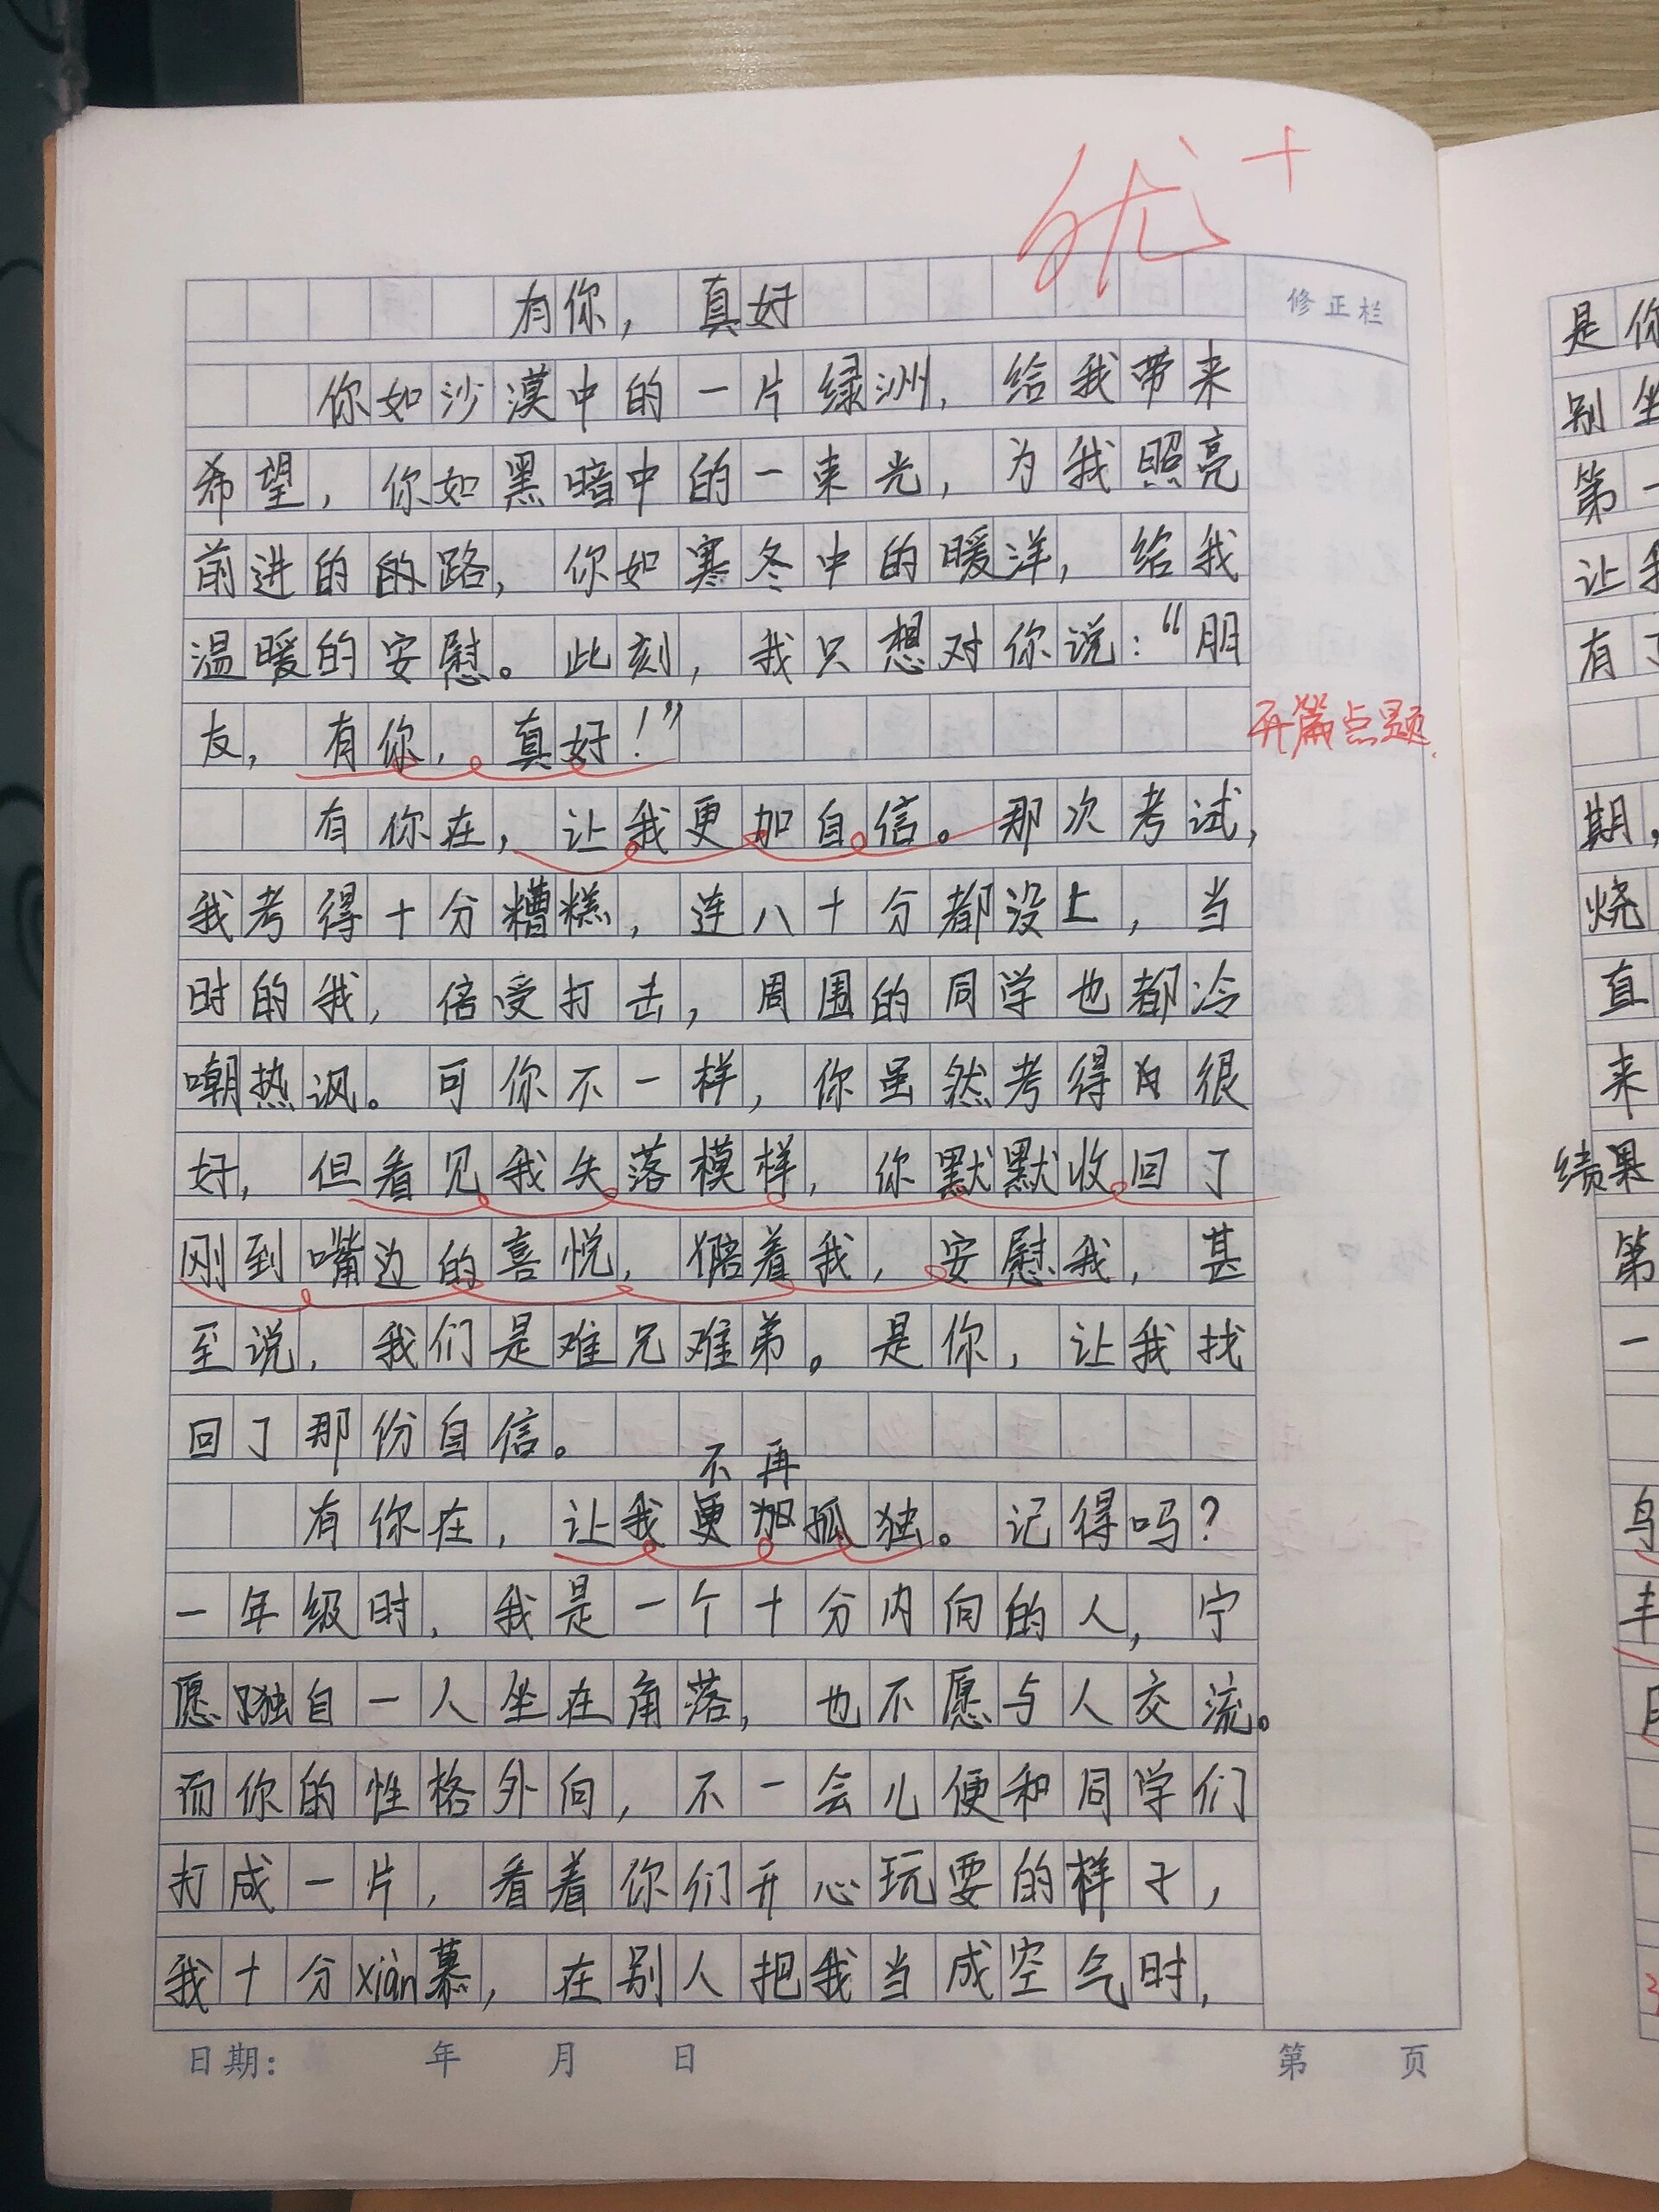 优+
有你，真好
修正栏
你如沙漠中的一片绿洲，给我带来
希望，你如黑暗中的一束光，为我照亮
前进的的路，你如寒冬中的暖洋，给我
温暖的安慰。此刻，我只想对你说：“朋
友，有你，真好！”
开篇点题
有你在，让我更加自信。那次考试，
我考得十分糟糕，连八十分都没上，当
时的我，倍受打击，周围的同学也都冷
嘲热讽。可你不一样，你虽然考得很
好，但看见我失落模样，你默默收回了
刚到嘴边的喜悦，陪着我，安慰我，甚
至说，我们是难兄难弟。是你，让我找
回了那份自信。
不再
有你在，让我更加孤独。记得吗？
一年级时，我是一个十分内向的人，宁
愿独自一人坐在角落，也不愿与人交流。
而你的性格外向，不一会儿便和同学们
打成一片，看着你们开心玩耍的样子，
我十分xiàn慕，在别人把我当成空气时，
日期： 年 月 日
第 页
是你
别坐
第一
让我
有了
期，
烧
直
来
绩果
第
一